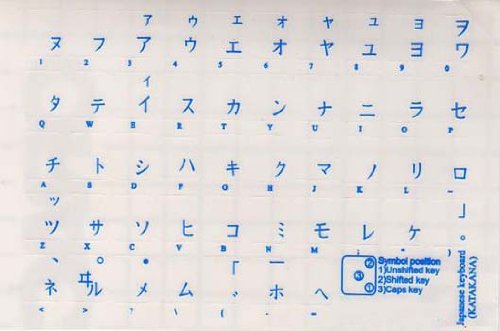 ァ ゥ ェ ォ ャ ュ ョ ヲ
ヌ フ ア ウ エ オ ヤ ユ ヨ ワ
1 2 3 4 5 6 7 8 9 0
ィ
タ テ イ ス カ ン ナ ニ ラ セ
Q W E R T Y U I O P
チ ト シ ハ キ ク マ ノ リ ロ
A S D F G H J K L
ッ 」
ツ サ ソ ヒ コ ミ モ レ ケ 。
Z X C V B N M
、 ゜ ・ 「 ー
ネ ヰ ル メ ム ホ ヘ
< > ? \
② Symbol position
1)Unshifted key
③ 2)Shifted key
① 3)Caps key
Japanese keyboard
(KATAKANA)